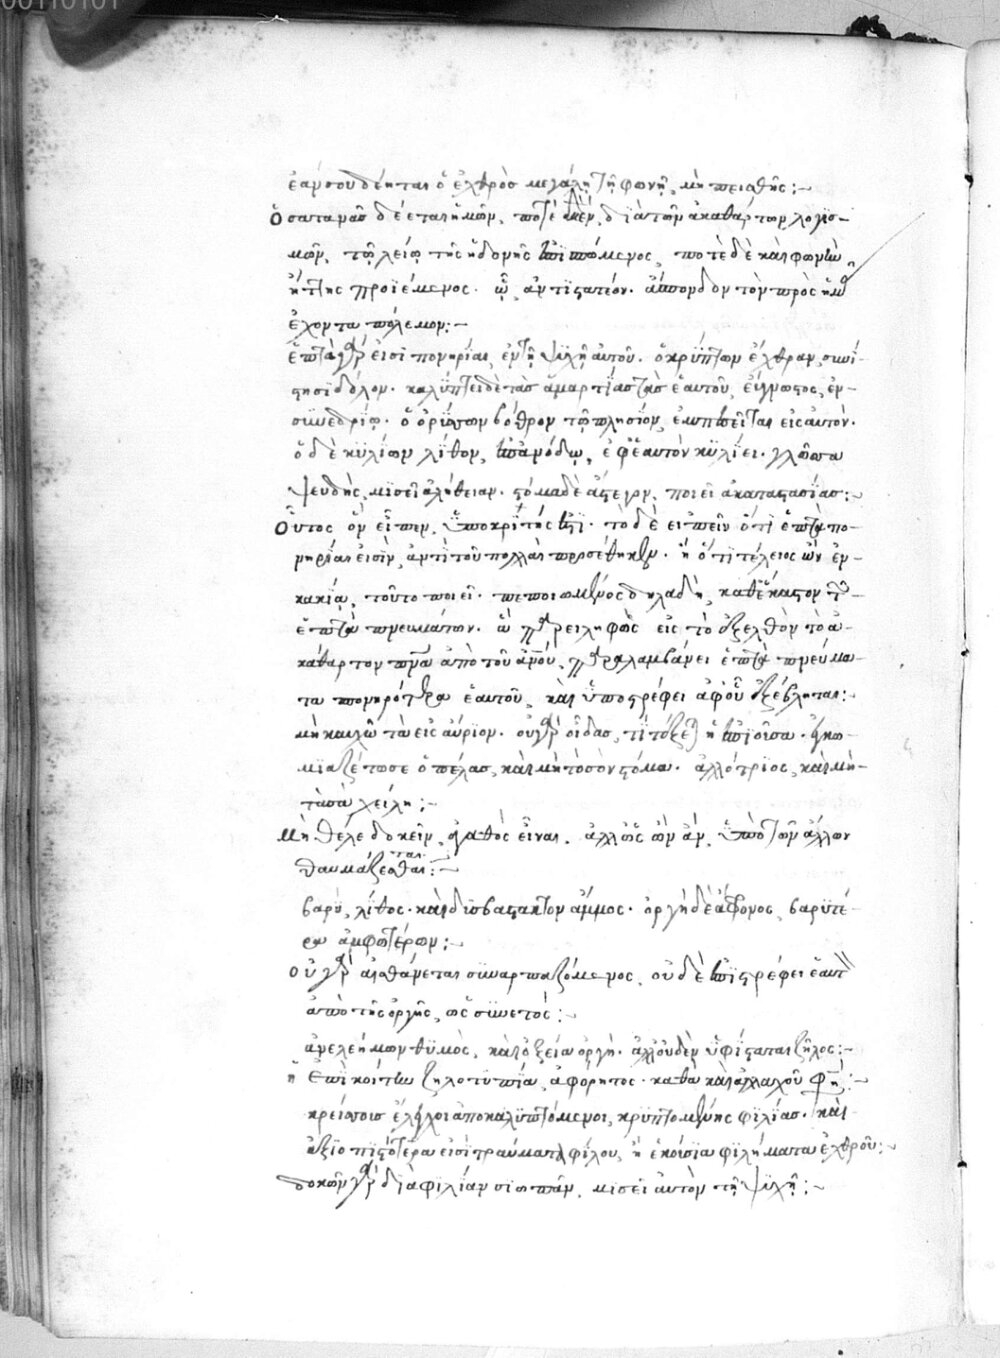 00110101
ἐάν σου δέηται ὁ ἐχθρὸς μεγάλῃ τῇ φωνῇ, μὴ πεισθῇς :-
Ὁ σατανᾶς δέεται ἡμῶν, ποτὲ μὲν, διὰ τῶν ἀκαθάρτων λογισ-
μῶν, τῷ λείῳ τῆς ἡδονῆς ἐπιπώμενος, ποτὲ δὲ καὶ φωνὴν
προϊέμενος. ᾧ ἀντιστατέον. ἄσπονδον τὸν πρὸς ἡμᾶς
ἔχοντα πόλεμον :-
ἑπτὰ γάρ εἰσι πονηρίαι ἐν τῇ ψυχῇ αὐτοῦ. ὁ κρύπτων ἔχθραν, συνί-
στησι δόλον. καλύπτει δὲ τὰς ἁμαρτίας τὰς ἑαυτοῦ, εὔγνωστος, ἐν
συνεδρίῳ. ὁ ὀρύττων βόθρον τῷ πλησίον, ἐμπεσεῖται εἰς αὐτόν.
ὁ δὲ κυλίων λίθον, ἐφ' ἑαυτὸν κυλίει. γλῶσσα
ψευδὴς, μισεῖ ἀλήθειαν. στόμα δὲ ἄστεγον, ποιεῖ ἀκαταστασίας :-
Οὗτος ὃν εἶπεν, ὑποκριτής ἐστι. τὸ δὲ εἰπεῖν ὅτι ἑπτὰ πο-
νηρίαι εἰσὶν, ἀντὶ τοῦ πολλαὶ προσέθηκεν. ἢ ὅτι τέλειος ὢν ἐν
κακίᾳ, τοῦτο ποιεῖ. πεποιωμένος δηλαδὴ, καθ' ἕκαστον τῶν
ἑπτὰ πνευμάτων. ὧν παρειληφὼς εἰς τὸ ἐξελθὸν τὸ ἀ-
κάθαρτον πνεῦμα ἀπὸ τοῦ ἀνθρώπου, παραλαμβάνει ἑπτὰ πνεύμα-
τα πονηρότερα ἑαυτοῦ, καὶ ὑποστρέφει ἀφ' οὗ ἐξέβληται :
μὴ καυχῶ τὰ εἰς αὔριον. οὐ γὰρ οἶδας, τί τέξεται ἡ ἐπιοῦσα. ἐγκω-
μιαζέτω σε ὁ πέλας, καὶ μὴ τὸ σὸν στόμα. ἀλλότριος, καὶ μὴ
τὰ σὰ χείλη :-
Μὴ θέλε δοκεῖν, ἀγαθὸς εἶναι. ἀλλ' ὡς ὢν ἂν, ὑπὸ τῶν ἄλλων
θαυμάζεσθαι :-
βαρὺ, λίθος. καὶ δυσβάστακτον ἄμμος. ὀργὴ δὲ ἄφρονος, βαρυτέ-
ρα ἀμφοτέρων :-
οὐ γὰρ αἰσθάνεται συναρπαζόμενος, οὐδὲ ἐπιστρέφει ἑαυτὸν
ἀπὸ τῆς ὀργῆς, ὡς συνετός :-
ἀνελεήμων θυμὸς, καὶ ὀξεῖα ὀργή. ἀλλ' οὐδὲν ὑφίσταται ζῆλος :-
ἡ ἐπὶ κοίτῃ ζηλοτυπία, ἀφόρητος. καθὰ καὶ ἀλλαχοῦ φησί :-
κρείττοις ἔλεγχοι ἀποκαλυπτόμενοι, κρυπτομένης φιλίας. καὶ
ἀξιοπιστότερά εἰσι τραύματα φίλου, ἢ ἑκούσια φιλήματα ἐχθροῦ :-
δοκῶν γὰρ διὰ φιλίαν σιωπᾶν, μισεῖ αὐτὸν τῇ ψυχῇ :-